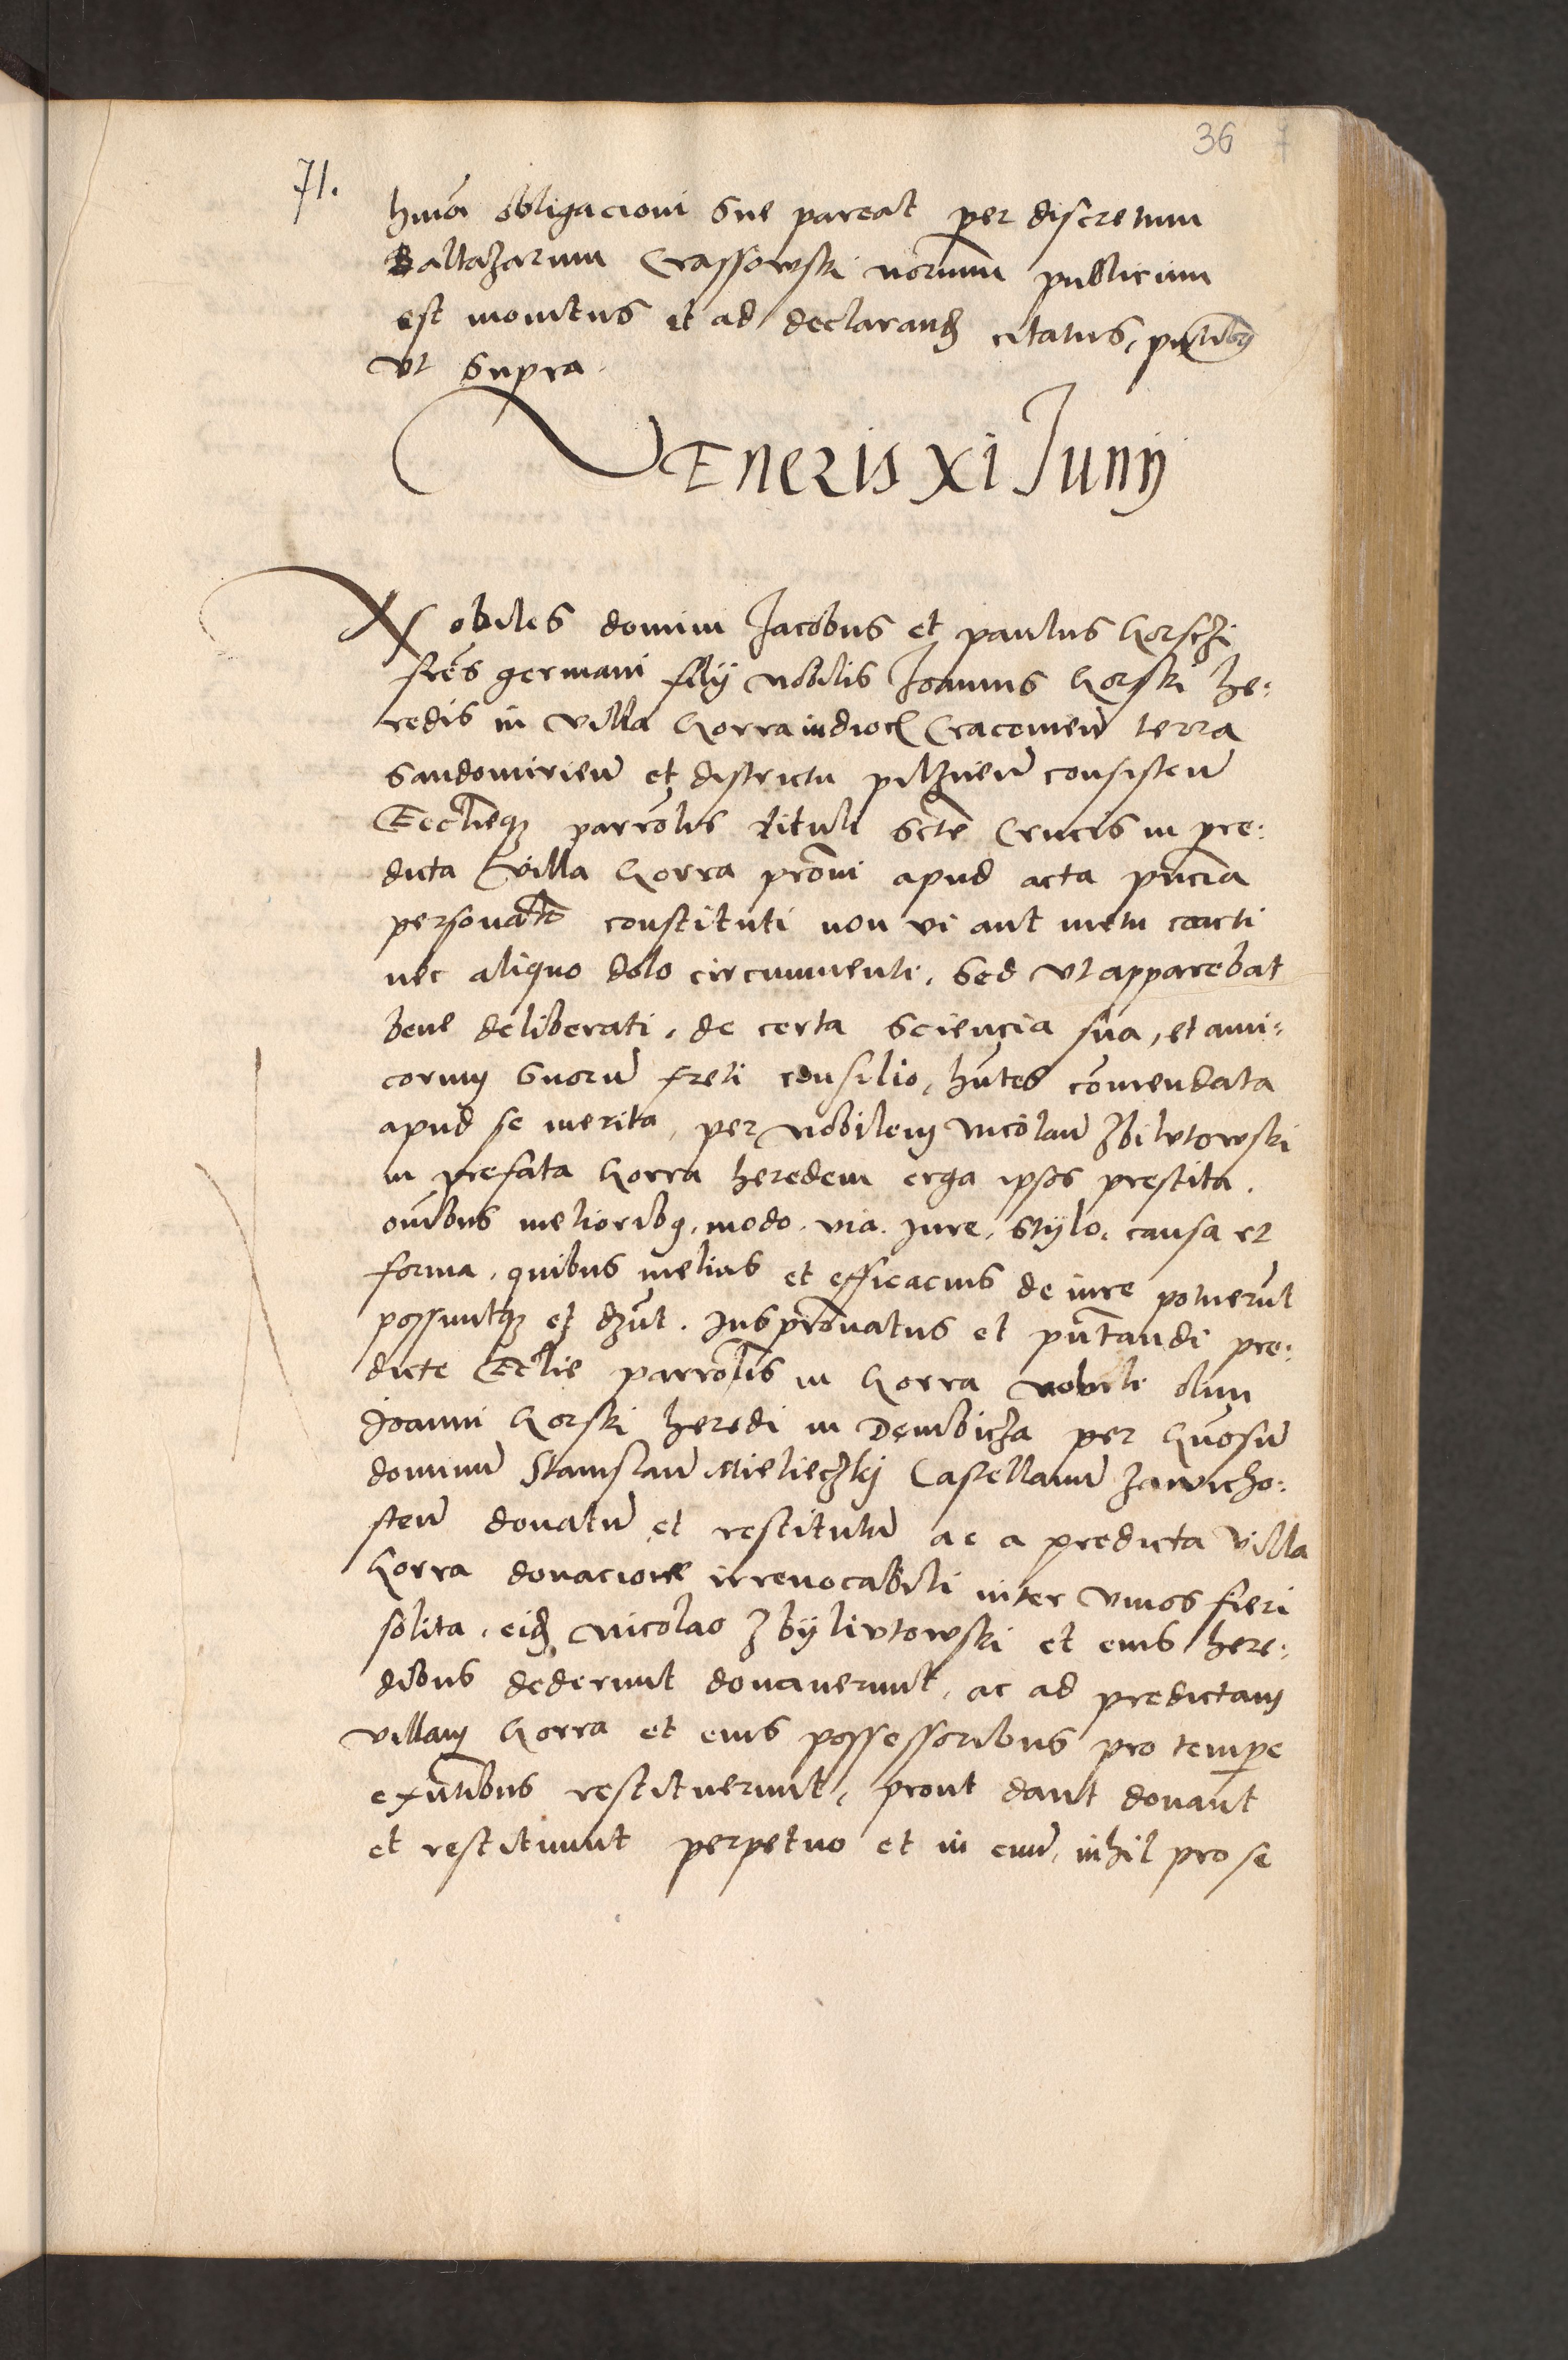 36 7
71.
hmoi obligacioni sue pareat per discretum
Baltazarum Crassowski norium publicum
est monitus et ad declarand citatus, pntibus
vt supra.
VENERIS XI Junij
Nobiles domini Jacobus et paulus Gorsczi
fres germani filij nobilis Joannis Gorski he:
redis in villa Gorra in dioc Cracovien terra
Sandomirien et districtu pilznen consisten
Ecclieq parrolis tituli scte Crucis in pre:
dicta villa Gorra proni apud acta pncia
personalr constituti non vi aut metu coacti
nec aliquo dolo circumuenti, sed vt apparebat
bene deliberati, de certa sciencia sua, et ami:
corum suoru freti consilio, hntes comendata
apud se merita, per nobilem Nicolau Zbilutowski
in prefata Gorra heredem erga ipsos prestita.
oibus melioribq, modo. via. jure, stylo, causa et
forma, quibus melius et efficacius de iure potuerut
possuntq et dnt. Jus pronatus et pntandi pre:
dicte Eclie parrolis in Gorra nobili olim
Joanni Gorski heredi in Dembicza per Gnosu
dominu Stanislau Mielieczkj Castellanu zawicho:
sten donatu et restitutu ac a predicta villa
Gorra donacione irreuocabili inter viuos fieri
solita, eid Nicolao Zbylivtowski et eius here:
dibus dederunt donauerunt, ac ad predictam
villam Gorra et eius possessoribus pro tempe
exntibus restituerunt, prout dant donant
et restituunt perpetuo et in euu, nihil pro se